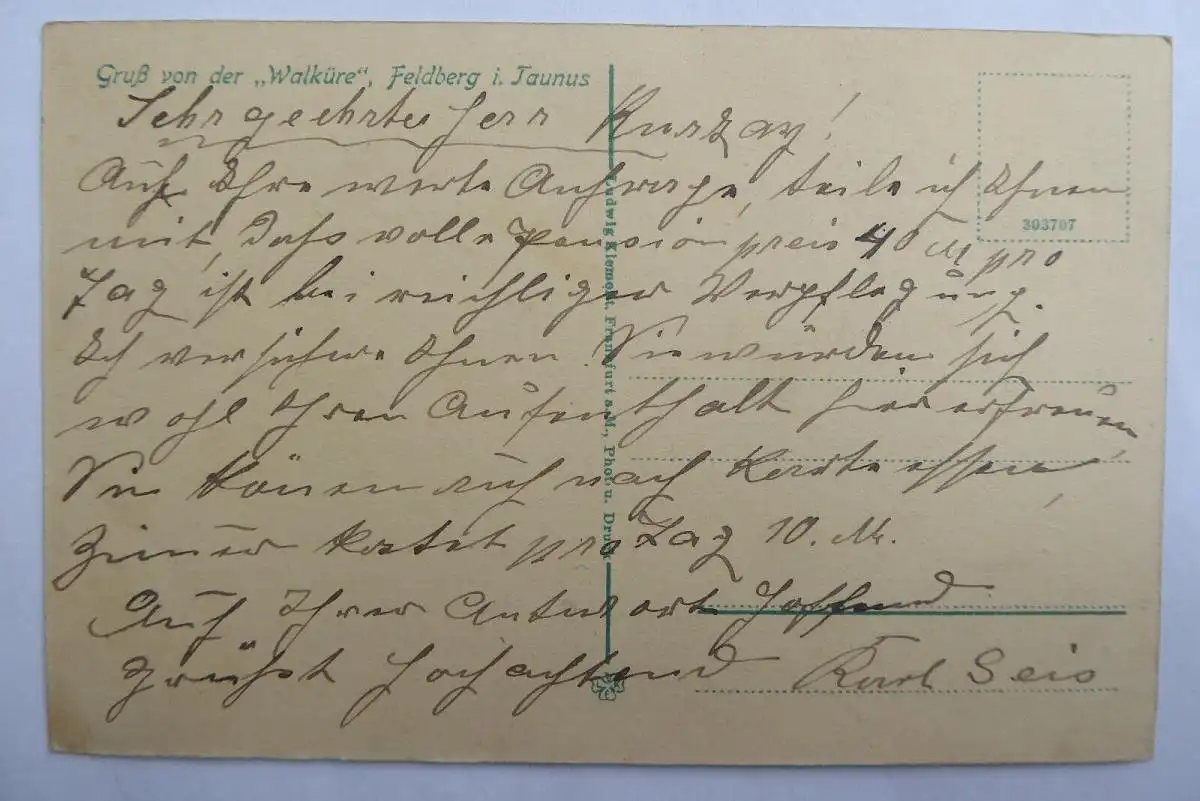 Gruß von der „Walküre“, Feldberg i. Taunus
Sehr geehrter Herr
Auf Ihre werte Anfrage, teile ich Ihnen
mit, daß volle Pension preis 40 M pro
Tag ist bei reichliger Verpflegung.
Ich versichre Ihnen Sie würden sich
wohl Ihren Aufenthalt hier erfreuen
Sie könen auch nach Karte essen,
Zimer kostet pro Tag 10. M.
Auf Ihrer Antwort hoffend
grüßt hochachtend Karl Seis
303707
Ludwig Klement, Frankfurt a. M., Phot. u. Druck